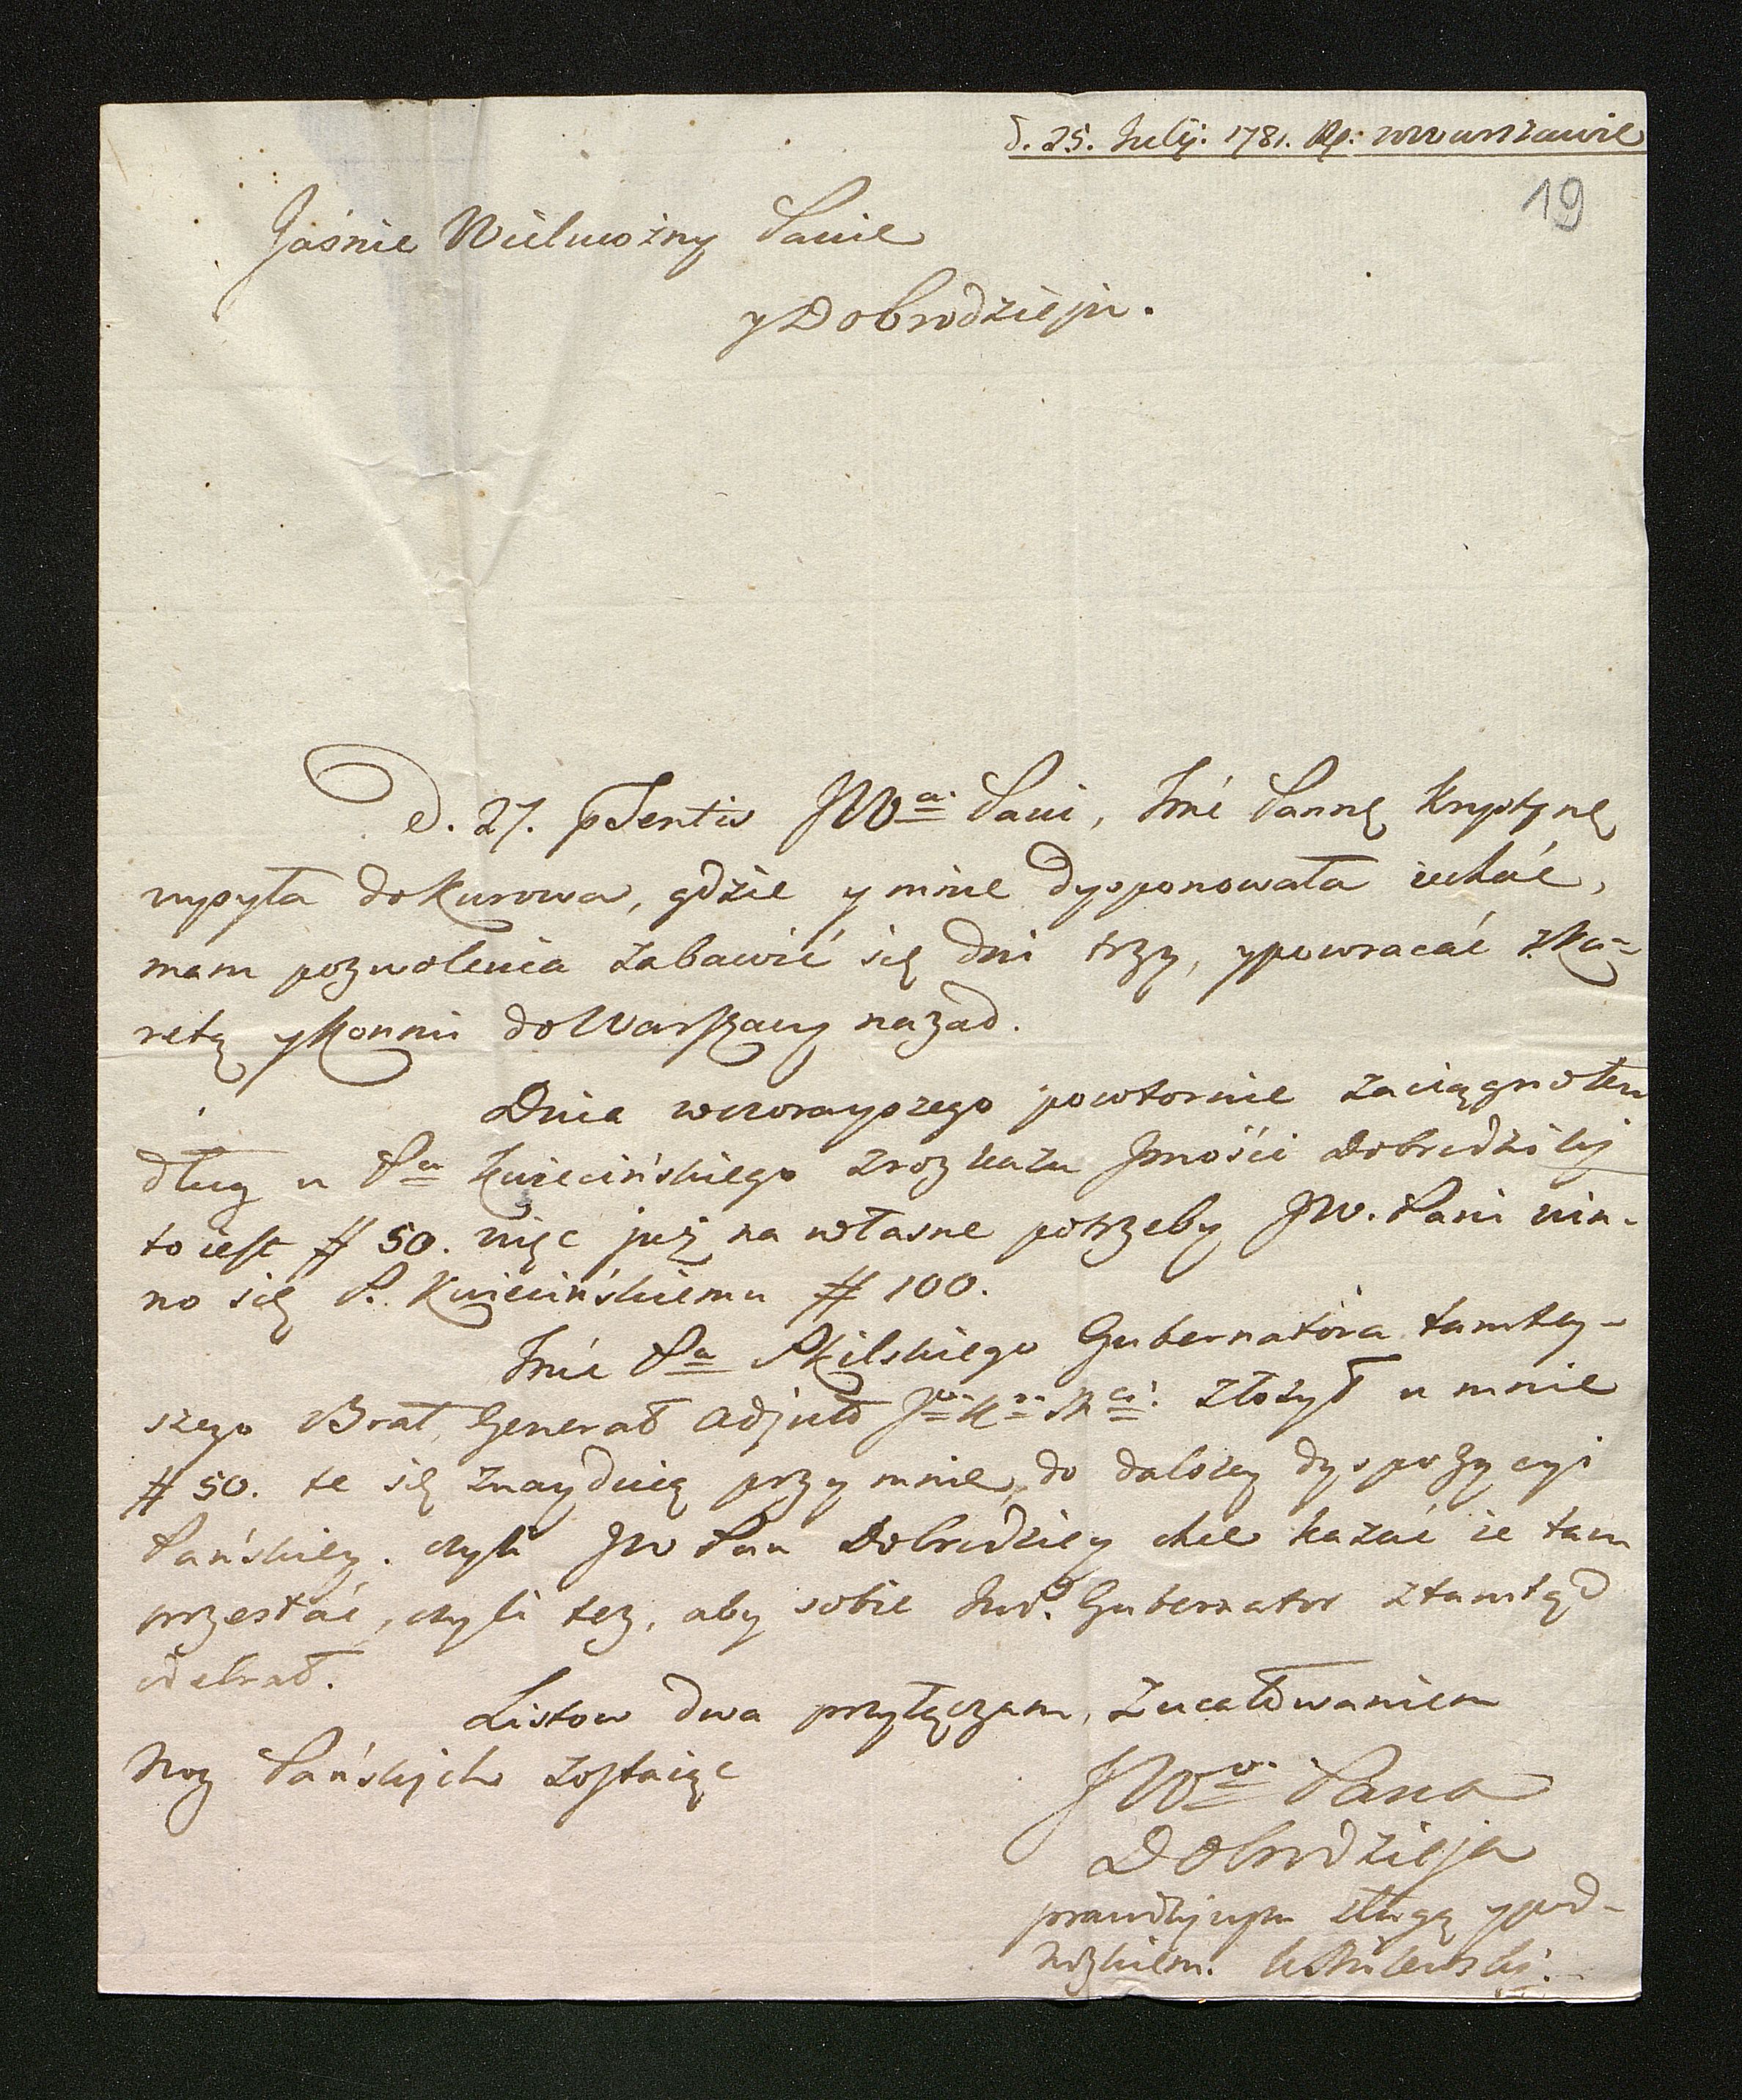 d. 25. Julij. 1781. Rp: w Warszawie
19
Jaśnie Wielmożny Panie
y Dobrodzieju.
D. 27. pSentis JWa. Pani, Jmć Pannę Krystynę
wysyła do Kurowa, gdzie y mnie dysponowała iechać,
mam pozwolenia zabawić się dni trzy, y powracać z Ka-
retą y Konmi do Warszawy nazad.
Dnia wczorayszego powtornie zaciągnołem
dług u Pa Kwiecińskiego z rozkazu Jmości Dobrodziki
to iest # 50. więc już na własne potrzeby JW. Pani win-
no się P. Kwiecińskiemu # 100.
Jmć Pa Skilskiego Gubernatora tamtey-
szego Brat, Generał Adjut J K Mci: złożył u mnie
# 50. te się znayduią przy mnie, do dalszey dyspozycyi
Pańskiey. czyli JW Pan Dobrodziey chce kazać ie tam
przesłać, czyli tez, aby sobie Gubernator ztamtąd
odebrał.
Listow dwa przyłączam, z ucałowaniem
Nog Pańskich zostaię
JWo. Pana
Dobrodzieja
prawdziwym sługą y pod-
nożkiem.